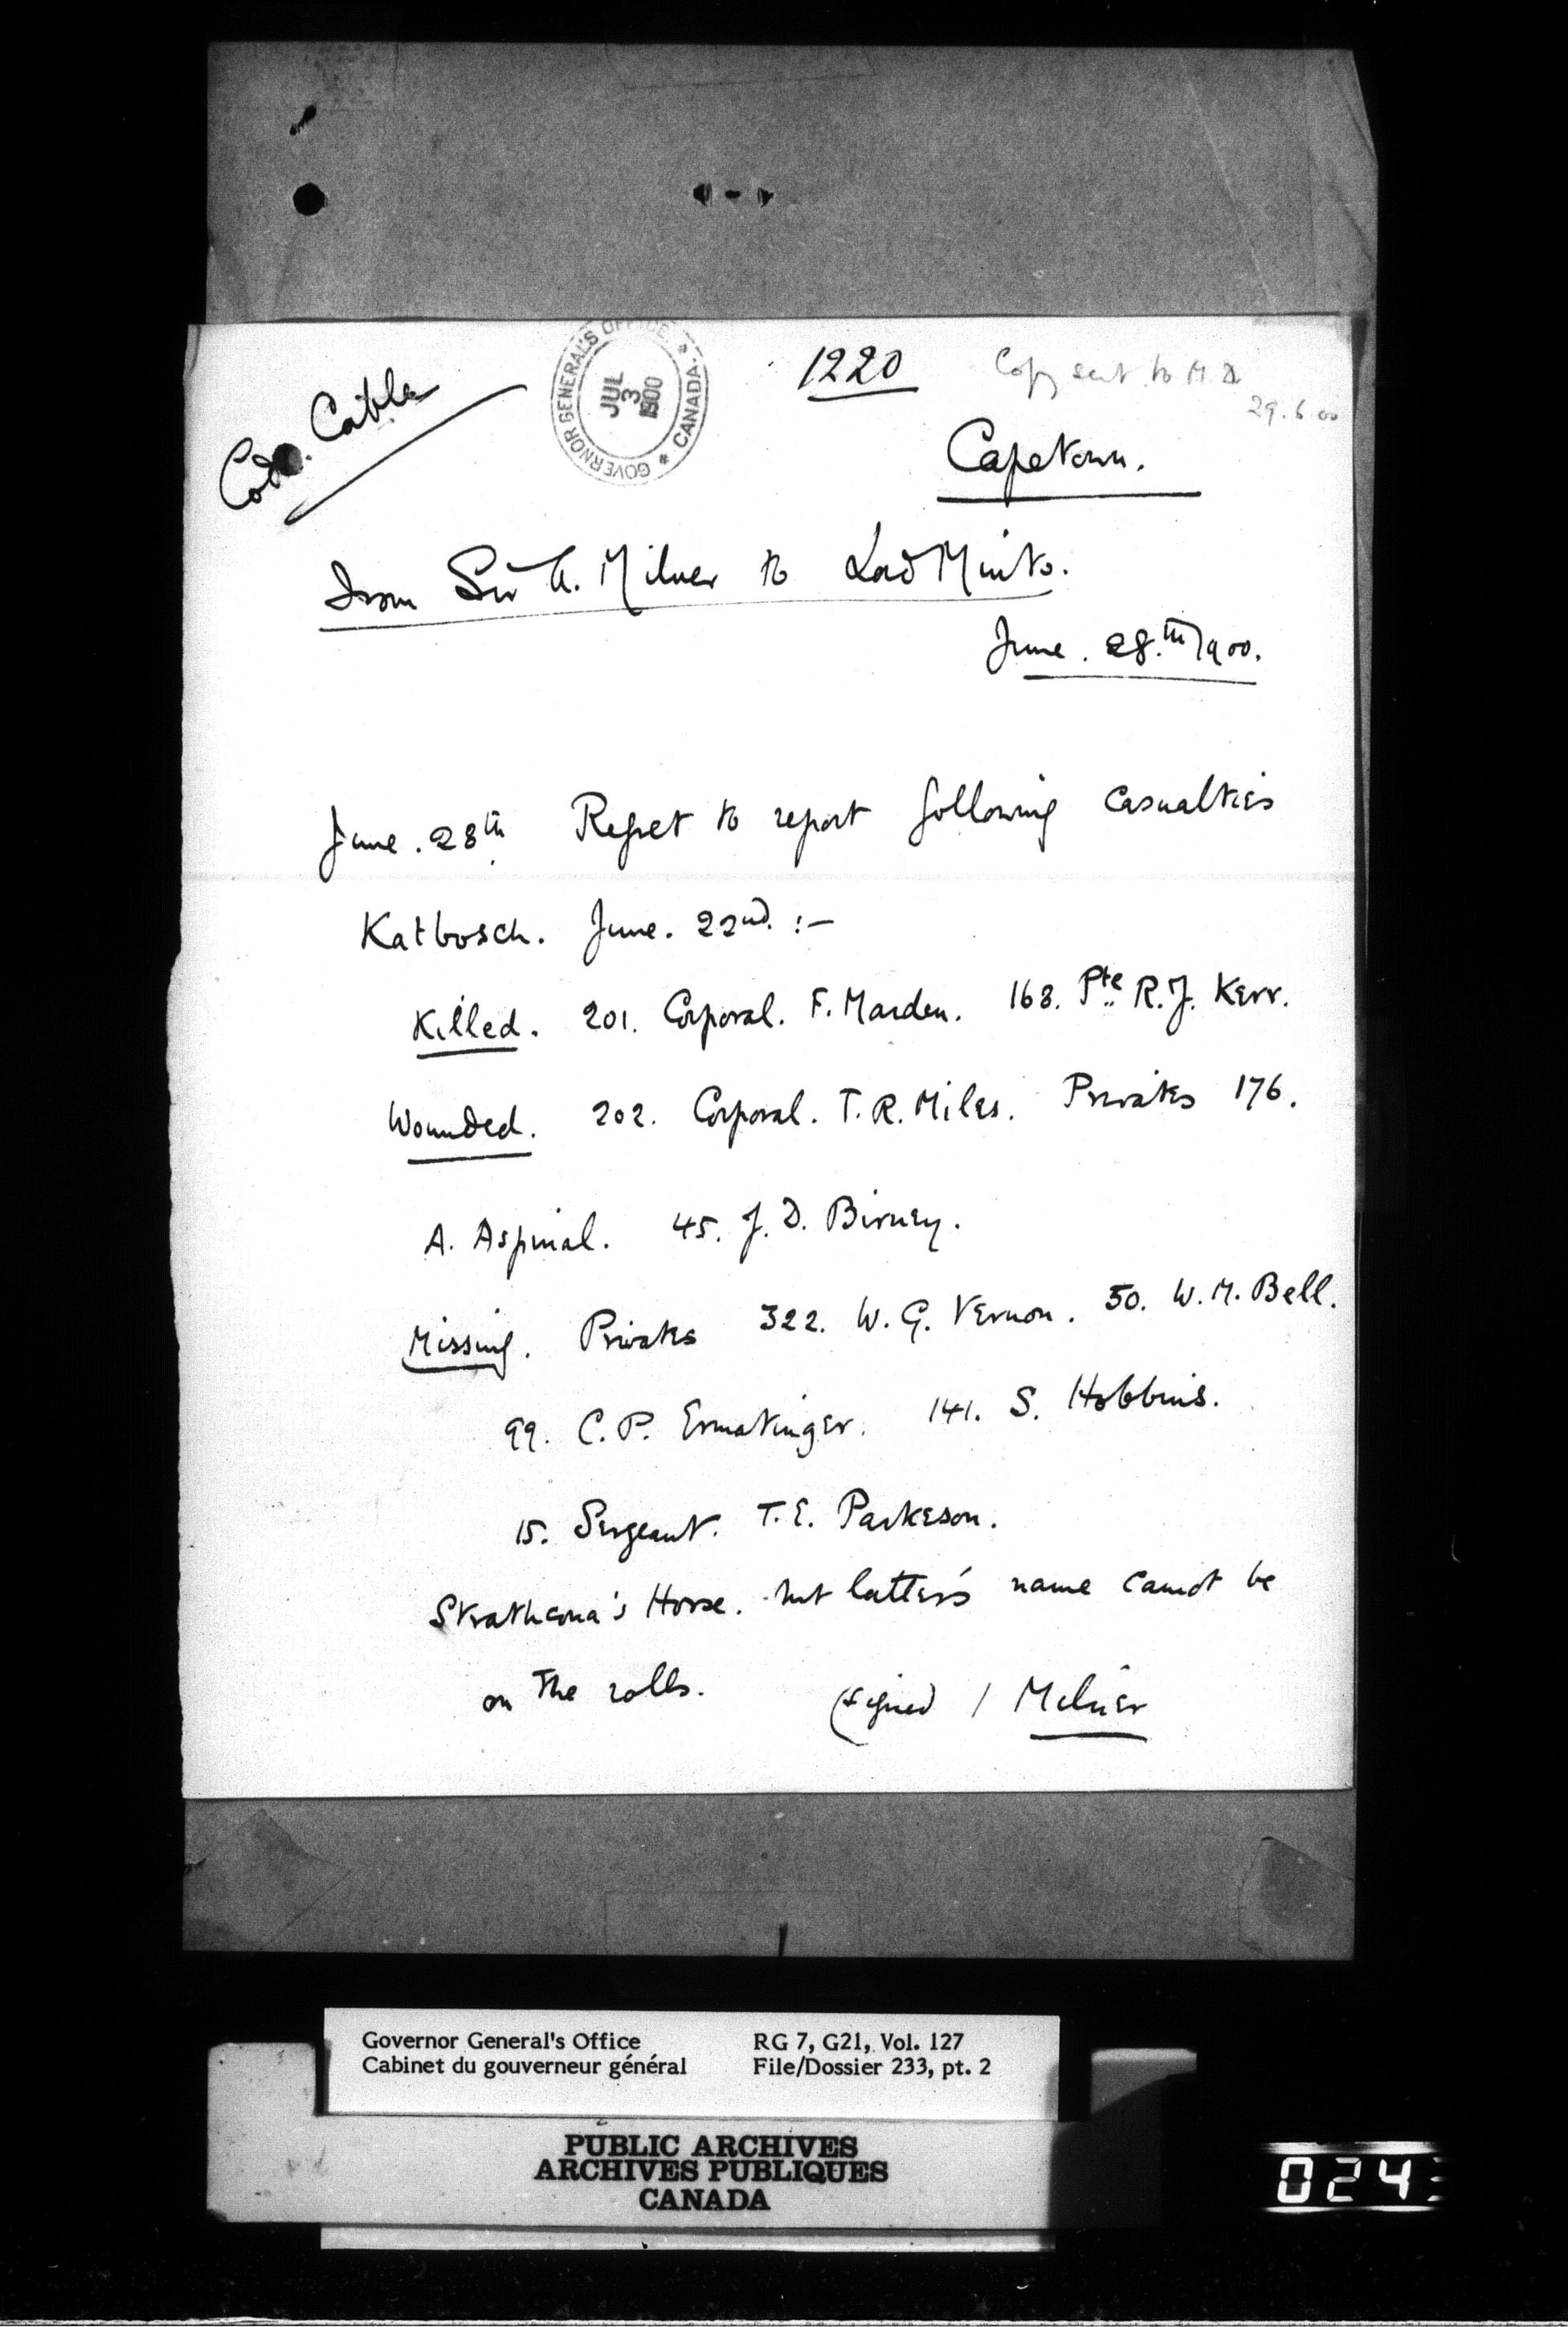 Code. Cable
GOVERNOR GENERAL'S OFFICE * CANADA. *
JUL
3
1900
1220
Copy sent to M.D.
29.6.00
Capetown.
From Sir A. Milner to Lord Minto.
June. 28.th 1900.
June. 28th Regret to report following casualties
Katbosch. June. 22nd. :-
Killed. 201. Corporal. F. Marden. 168. Pte R.J. Kerr.
Wounded. 202. Corporal. T.R. Miles. Privates 176.
A. Aspinal. 45. J.D. Birney.
Missing. Privates 322. W.G. Vernon. 50. W.M. Bell.
99. C.P. Ermatinger. 141. S. Hobbins.
15. Sergeant. T.E. Parkeson.
Strathcona's Horse. but latter's name cannot be
on the rolls. (signed) / Milner
Governor General's Office RG 7, G21, Vol. 127
Cabinet du gouverneur général File/Dossier 233, pt. 2
PUBLIC ARCHIVES
ARCHIVES PUBLIQUES
CANADA
024